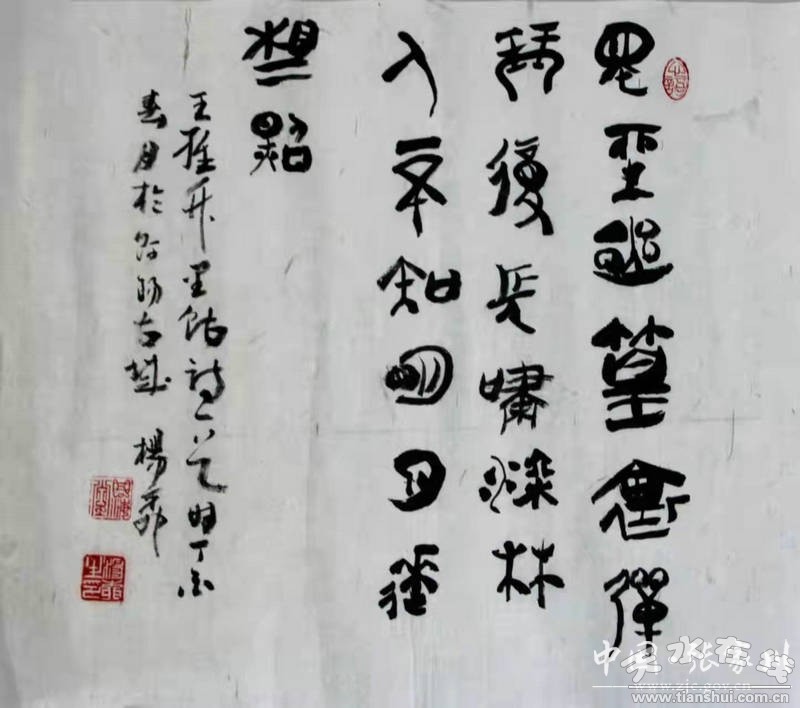 獨坐幽篁裏彈
琴復長嘯深林
人不知明月來
相照
王維竹里館詩一首時丁酉
春月於陽古城 楊
www.zjc.gov.cn
www.tianshui.com.cn